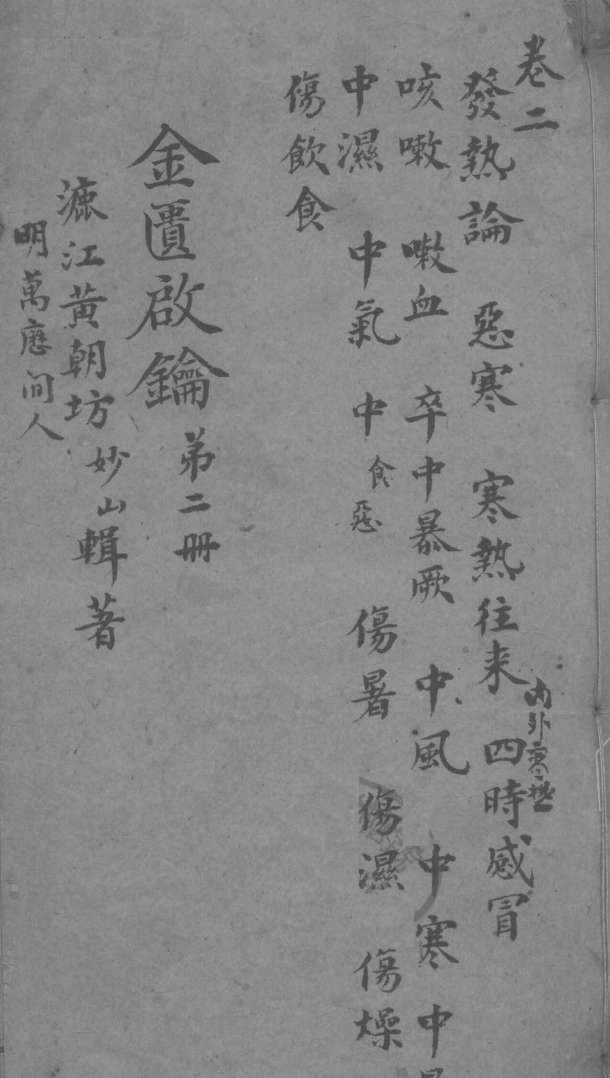 卷二
發熱論 惡寒 寒熱往来 四時感冒
內外寒熱
咳嗽 嗽血 卒中暴厥 中風 中寒 中
中濕 中氣 中食惡 傷暑 傷濕 傷燥
傷飲食
金匱啟鑰 弟二冊
漉江黃朝坊妙山輯著
明萬曆间人